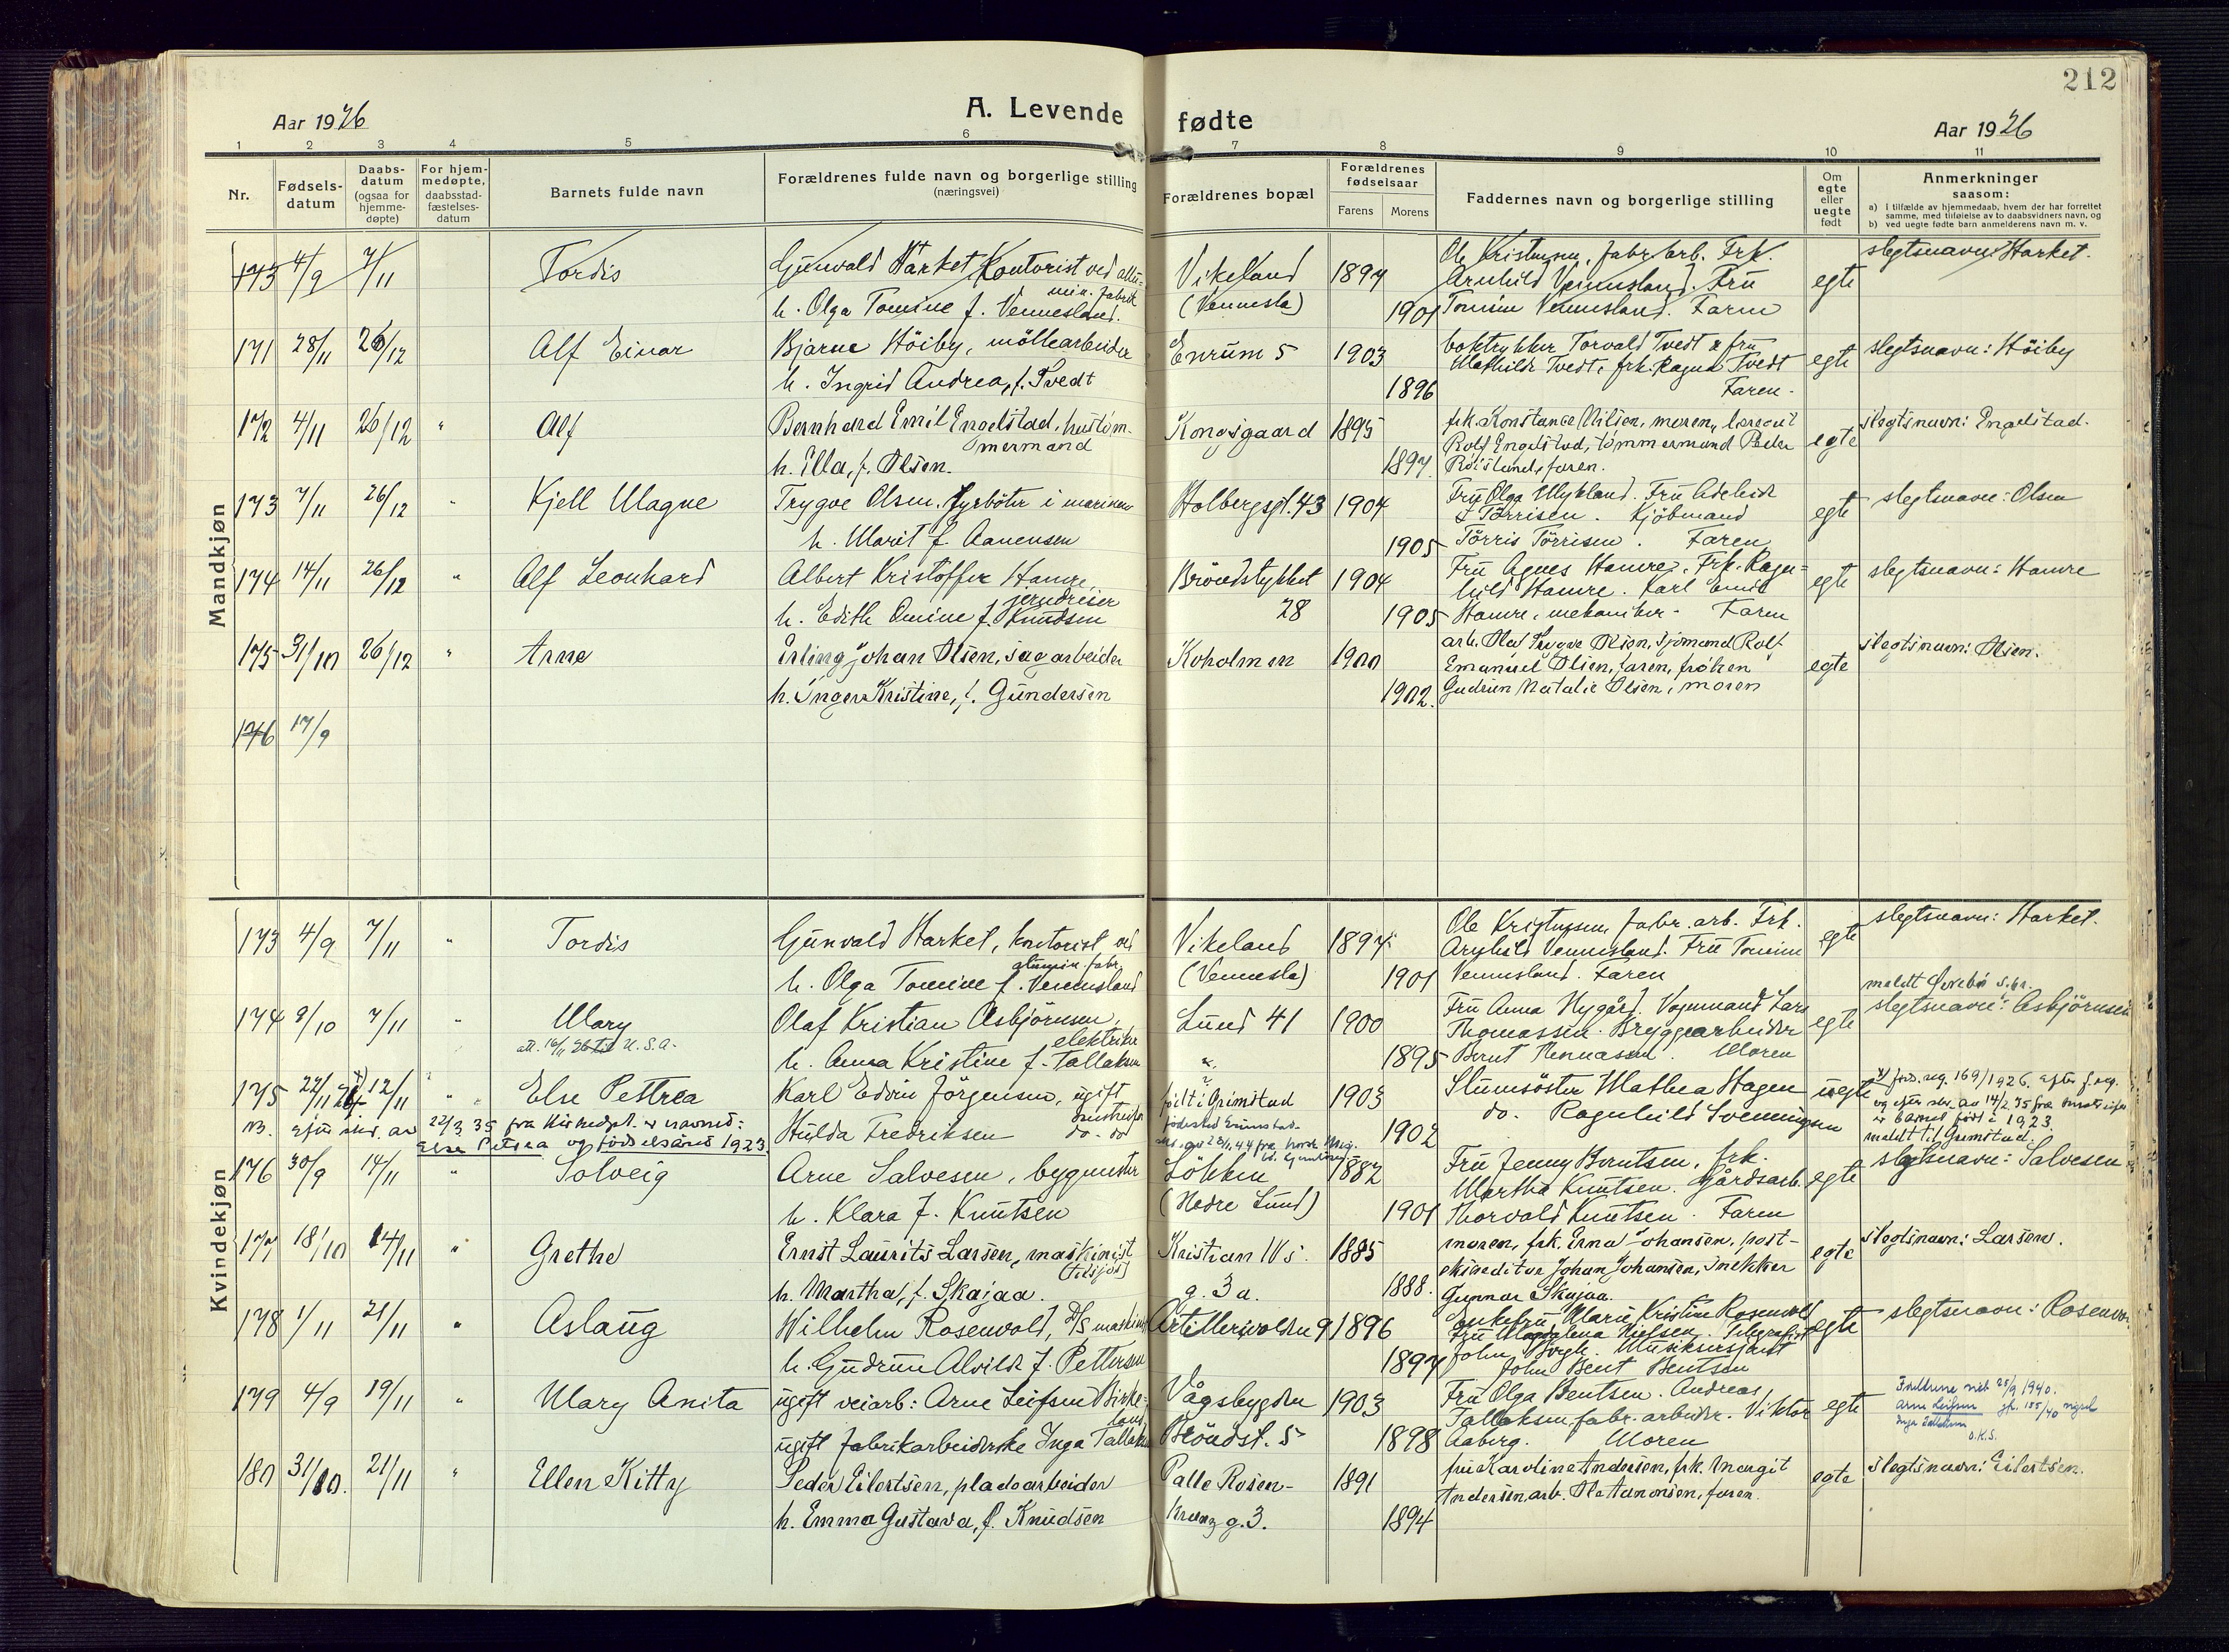 212
A. Levende fødte
Aar 1926
Aar 1926
1 2 3 4 5 6 7 8 9 10 11
Nr.
Fødsels-
datum
Daabs-
datum
(ogsaa for
hjemme-
døpte)
For hjem-
medøpte,
daabsstad-
fæstelses-
datum
Barnets fulde navn
Forældrenes fulde navn og borgerlige stilling
(næringsvei)
Forældrenes bopæl
Forældrenes
fødselsaar
Farens
Morens
Faddernes navn og borgerlige stilling
Om
egte
eller
uegte
født
Anmerkninger
saasom:
a) i tilfælde av hjemmedaab, hvem der har forrettet
samme, med tilføielse av to daabsvidners navn, og
b) ved uegte fødte barn anmelderens navn m. v.
Mandkjøn
173 4/9 7/11 Tordis Gunvald Harket, Kontorist ved alu- Vikeland 1897 Ole Kristensen, fabr. arb. Frk. egte slegtsnavn: Harket.
min. fabrik
h. Olga Tomine f. Vennesland. (Vennesla) 1901 Arnhild Vennesland. Fru
Tomine Vennesland. Faren
171 28/11 26/12 Alf Einar Bjarne Höiby, möllearbeider Enrum 5 1903 boktrykker Torvald Tvedt & fru egte slegtsnavn: Höiby
h. Ingrid Andrea, f. Tvedt 1896 Mathilde Tvedt, frk. Ragna Tvedt
Faren.
172 4/11 26/12 " Alf Bernhard Emil Engelstad, hustöm- Kongsgaard 1895 frk. Konstance Nilsen, moren, egte slegtsnavn: Engelstad.
mermand
h. Ella, f. Olsen. 1897 Rolf Engelstad, tömmermand Peder
Röisland, faren.
173 7/11 26/12 " Kjell Magne Trygve Olsen, fyrböter i marinen Holbergsgt. 43 1904 Fru Olga Mykland. Fru Adeleide egte slegtsnavn: Olsen
h. Marit f. Aanensen 1905 Törrisen. Kjöbmand
Törris Törrisen. Faren
174 14/11 26/12 " Alf Leonhard Albert Kristoffer Hamre, Bröndstykket 1904 Fru Agnes Hamre. Frk. Ragn- egte slegtsnavn: Hamre
jerndreier
h. Edith Omine f. Knudsen 28 1905 hild Hamre. Karl Emil
Hamre, mekaniker. Faren
175 31/10 26/12 " Arne Erling Johan Olsen, sagarbeider Koholmen 1900 arb. Olaf Trygve Olsen, sjömand Rolf egte slegtsnavn: Olsen.
h. Inger Kristine, f. Gundersen 1902. Emanuel Olsen, faren, fröken
Gudrun Natalie Olsen, moren
176 17/9
Kvindekjøn
173 4/9 7/11 " Tordis Gunvald Harket, kontorist ved Vikeland 1897 Ole Kristensen, fabr. arb. Frk. egte slegtsnavn: Harket.
alumin. fabr.
h. Olga Tomine f. Vennesland (Vennesla) 1901 Arnhild Vennesland. Fru Tomine
Vennesland. Faren
174 8/10 7/11 " Mary Olaf Kristian Asbjörnsen, Lund 41 1900 Fru Anna Nygård. Vognmand Lars egte slegtsnavn: Asbjörnsen
att. 16/11 26 til U.S.A. elektriker
h. Anna Kristine f. Tallaksen 1895 Thomassen. Bryggearbeider
Bernt Thomassen. Moren
meldt Øvrebö s.k.
175 22/11 12/11 " Else Pettrea Karl Edvin Jörgensen, ugift født i Grimstad 1903 Stuesöster Mathea Hagen uegte
Hulda Fredriksen do. do 1902 do. Ragnhild Svenningsen
NB. av 22/3 35 fra Kirkedept. er navnet:
Else Petrea og fødselsåret 1923.
fød. reg. 169/1926.
er barnet født i 1923.
meldt til Grimstad.
176 30/9 14/11 " Solveig Arne Salvesen, bygmester Lökken 1882 Fru Jenny Berntsen, frk. egte slegtsnavn: Salvesen
h. Klara f. Knutsen (Nedre Lund) 1901 Martha Knutsen. Gårdsarb.
Thorvald Knutsen. Faren
177 18/10 14/11 " Grethe Ernst Laurits Larsen, maskinist Kristian IVs. 1885 moren, frk. Erna Johansen, post- egte slegtsnavn: Larsen.
(tilsjøs)
h. Martha, f. Skajaa. g. 3a. 1888. ekspeditör Johan Johansen, snekker
Gunnar Skajaa.
178 1/11 21/11 " Aslaug Wilhelm Rosenvold, D/S maskinist Artillerivolden 9 1896 Enkefru Marie Kristine Rosenvold egte slegtsnavn: Rosenvold
h. Gudrun Alvilde f. Pettersen 1897 Fru Magdalena Nielsen. Telegrafist
John Bergh. Musiksersjant
John Bent Bentsen
179 4/9 19/11 " Mary Anita ugift veiarb: Arne Leifsen Birke- Vågsbygden 1903 Fru Olga Bentsen. Andreas egte
land,
ugift fabrikarbeiderske Inga Tallaksen Bröndst. 5 1898 Tallaksen, fabr. arbeider. Viktor
Aaberg. Moren
Foreldrene viet 28/9 1940.
Arne Leifsen
Inga Tallaksen
O.K.S.
180 31/10. 21/11 " Ellen Kitty Peder Eilertsen, pladearbeider Palle Rosen- 1891 fru Karoline Andersen, frk. Margit egte slegtsnavn: Eilertsen.
h. Emma Gustava, f. Knudsen krunz g. 3. 1894 Andersen, arb. Ola Aanonsen, faren.